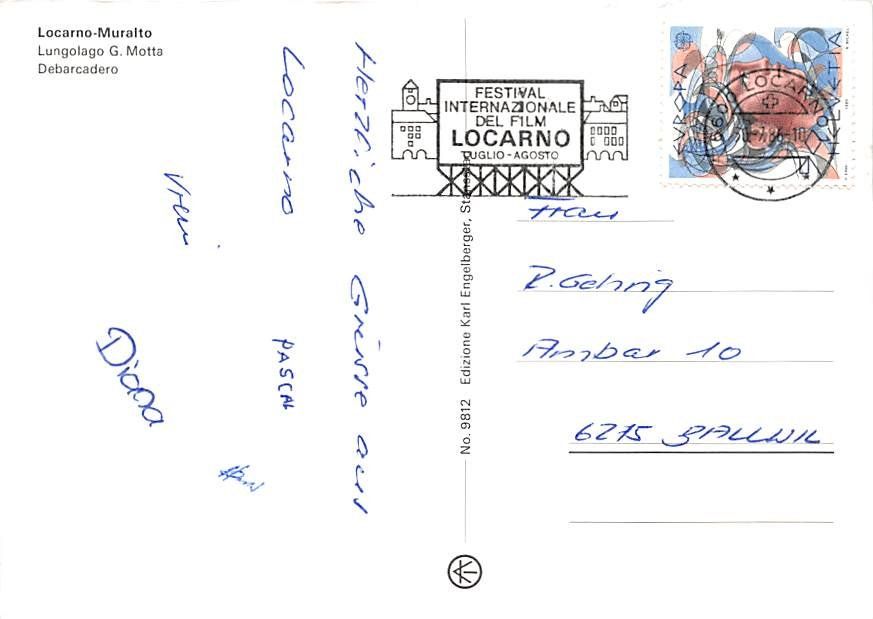 Locarno-Muralto
Lungolago G. Motta
Debarcadero
Herzliche Grüsse aus
Locarno
PASCAL
Vreni
Diana
No. 9812 Edizione Karl Engelberger,
FESTIVAL
INTERNAZIONALE
DEL FILM
LOCARNO
LUGLIO-AGOSTO
EUROPA
HELVETIA
6600 LOCARNO
Frau
R. Gehrig
Ambar 10
6275 BALLWIL